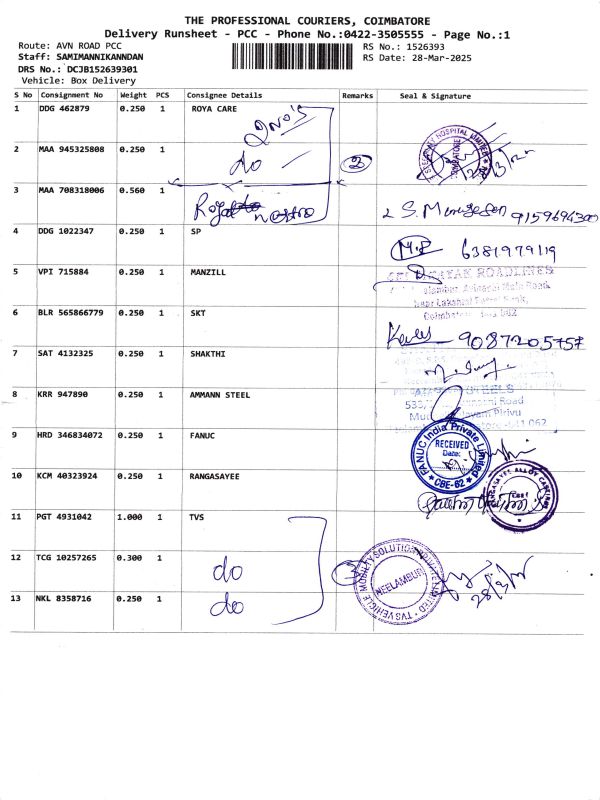 THE PROFESSIONAL COURIERS, COIMBATORE
Delivery Runsheet - PCC - Phone No.:0422-3505555 - Page No.:1
Route: AVN ROAD PCC
RS No.: 1526393
Staff: SAMIMANNIKANNDAN
RS Date: 28-Mar-2025
DRS No.: DCJB152639301
Vehicle: Box Delivery
S No Consignment No Weight PCS Consignee Details Remarks Seal & Signature
1 DDG 462879 0.250 1 ROYA CARE
2 no's
2 MAA 945325808 0.250 1 do 2
HOSPITAL LIMITED
3 MAA 708318006 0.560 1
S. Murugesan 9159694300
4 DDG 1022347 0.250 1 SP
6381979119
5 VPI 715884 0.250 1 MANZILL
ROADLINES
6 BLR 565866779 0.250 1 SKT
9087205757
7 SAT 4132325 0.250 1 SHAKTHI
8 KRR 947890 0.250 1 AMMANN STEEL
9 HRD 346834072 0.250 1 FANUC
FANUC India Private Limited
RECEIVED
Date:
CBE-62
10 KCM 40323924 0.250 1 RANGASAYEE
11 PGT 4931042 1.000 1 TVS
12 TCG 10257265 0.300 1 do
TVS VEHICLE MOBILITY SOLUTION PRIVATE LIMITED
NEELAMBUR
28/3/25
13 NKL 8358716 0.250 1 do